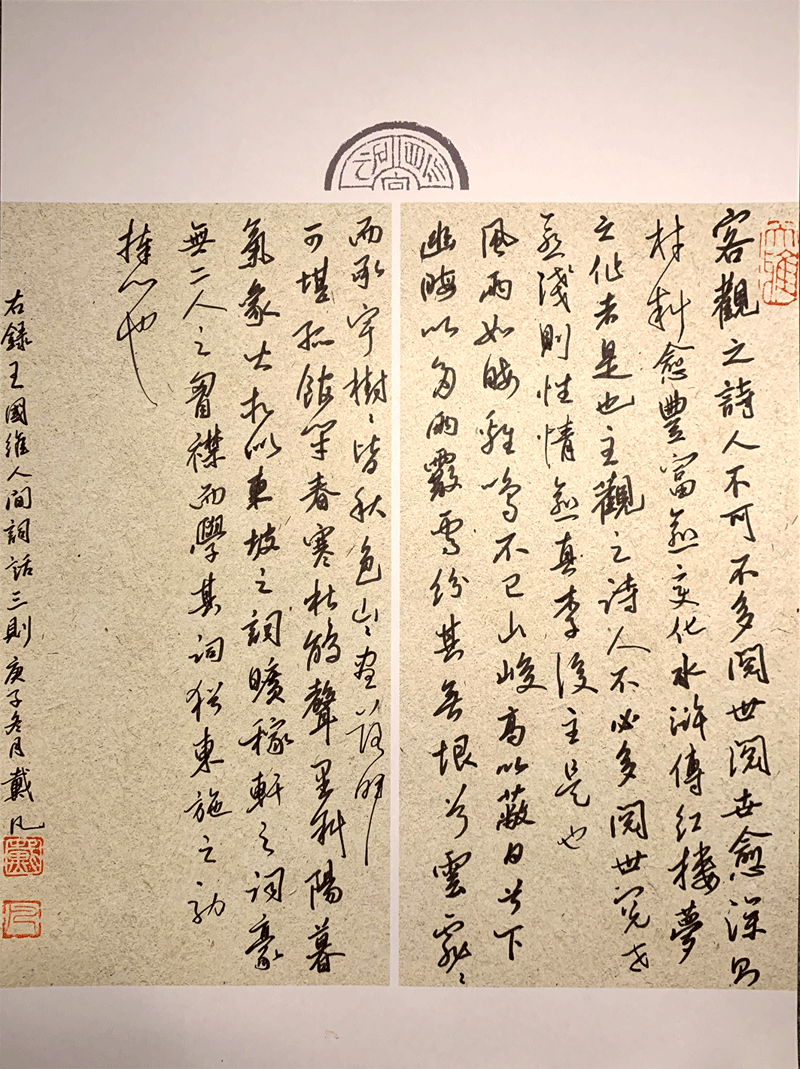 客觀之詩人不可不多閱世閱世愈深則
材料愈豐富愈變化水滸傳紅樓夢
之作者是也主觀之詩人不必多閱世閱世
愈淺則性情愈真李後主是也
風雨如晦雞鳴不已山峻高以蔽日兮下
幽晦以多雨霰雪紛其無垠兮雲霏〻
而承宇樹〻皆秋色山〻盡落暉
可堪孤館閉春寒杜鵑聲里斜陽暮
氣象皆相似東坡之詞曠稼軒之詞豪
無二人之胷襟而學其詞猶東施之効
捧心也
右錄王國維人間詞話三則 庚子冬月 戴凡